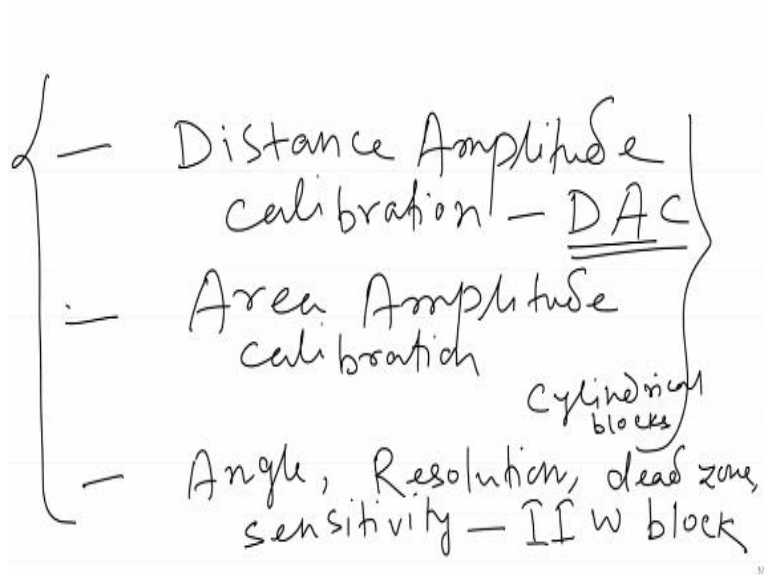 — Distance Amplitude
calibration - DAC
— Area Amplitude
calibration
Cylindrical
blocks
— Angle, Resolution, dead zone,
sensitivity - IIW block